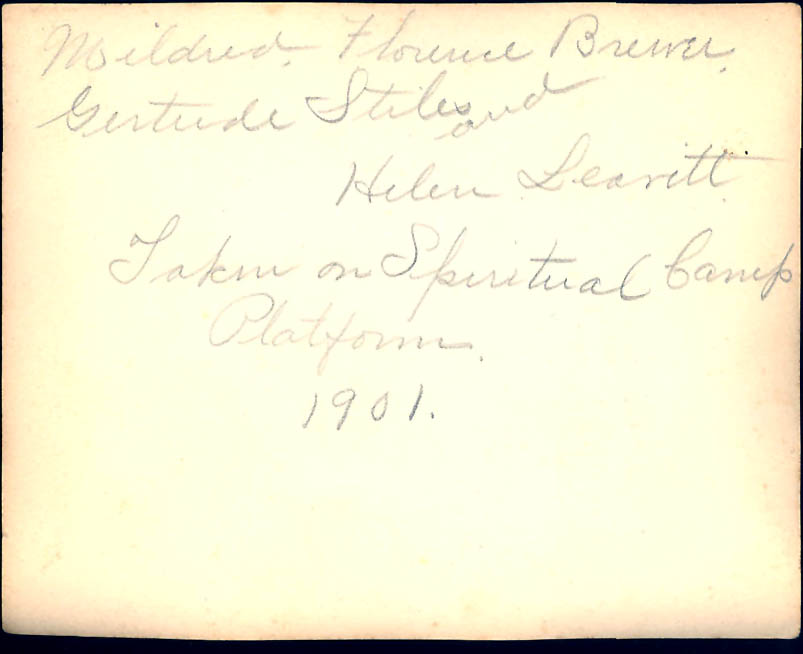 Mildred. Florence Brewer.
Gertrude Stiles and
Helen Leavitt.
Taken on Spiritual Camp
Platform.
1901.